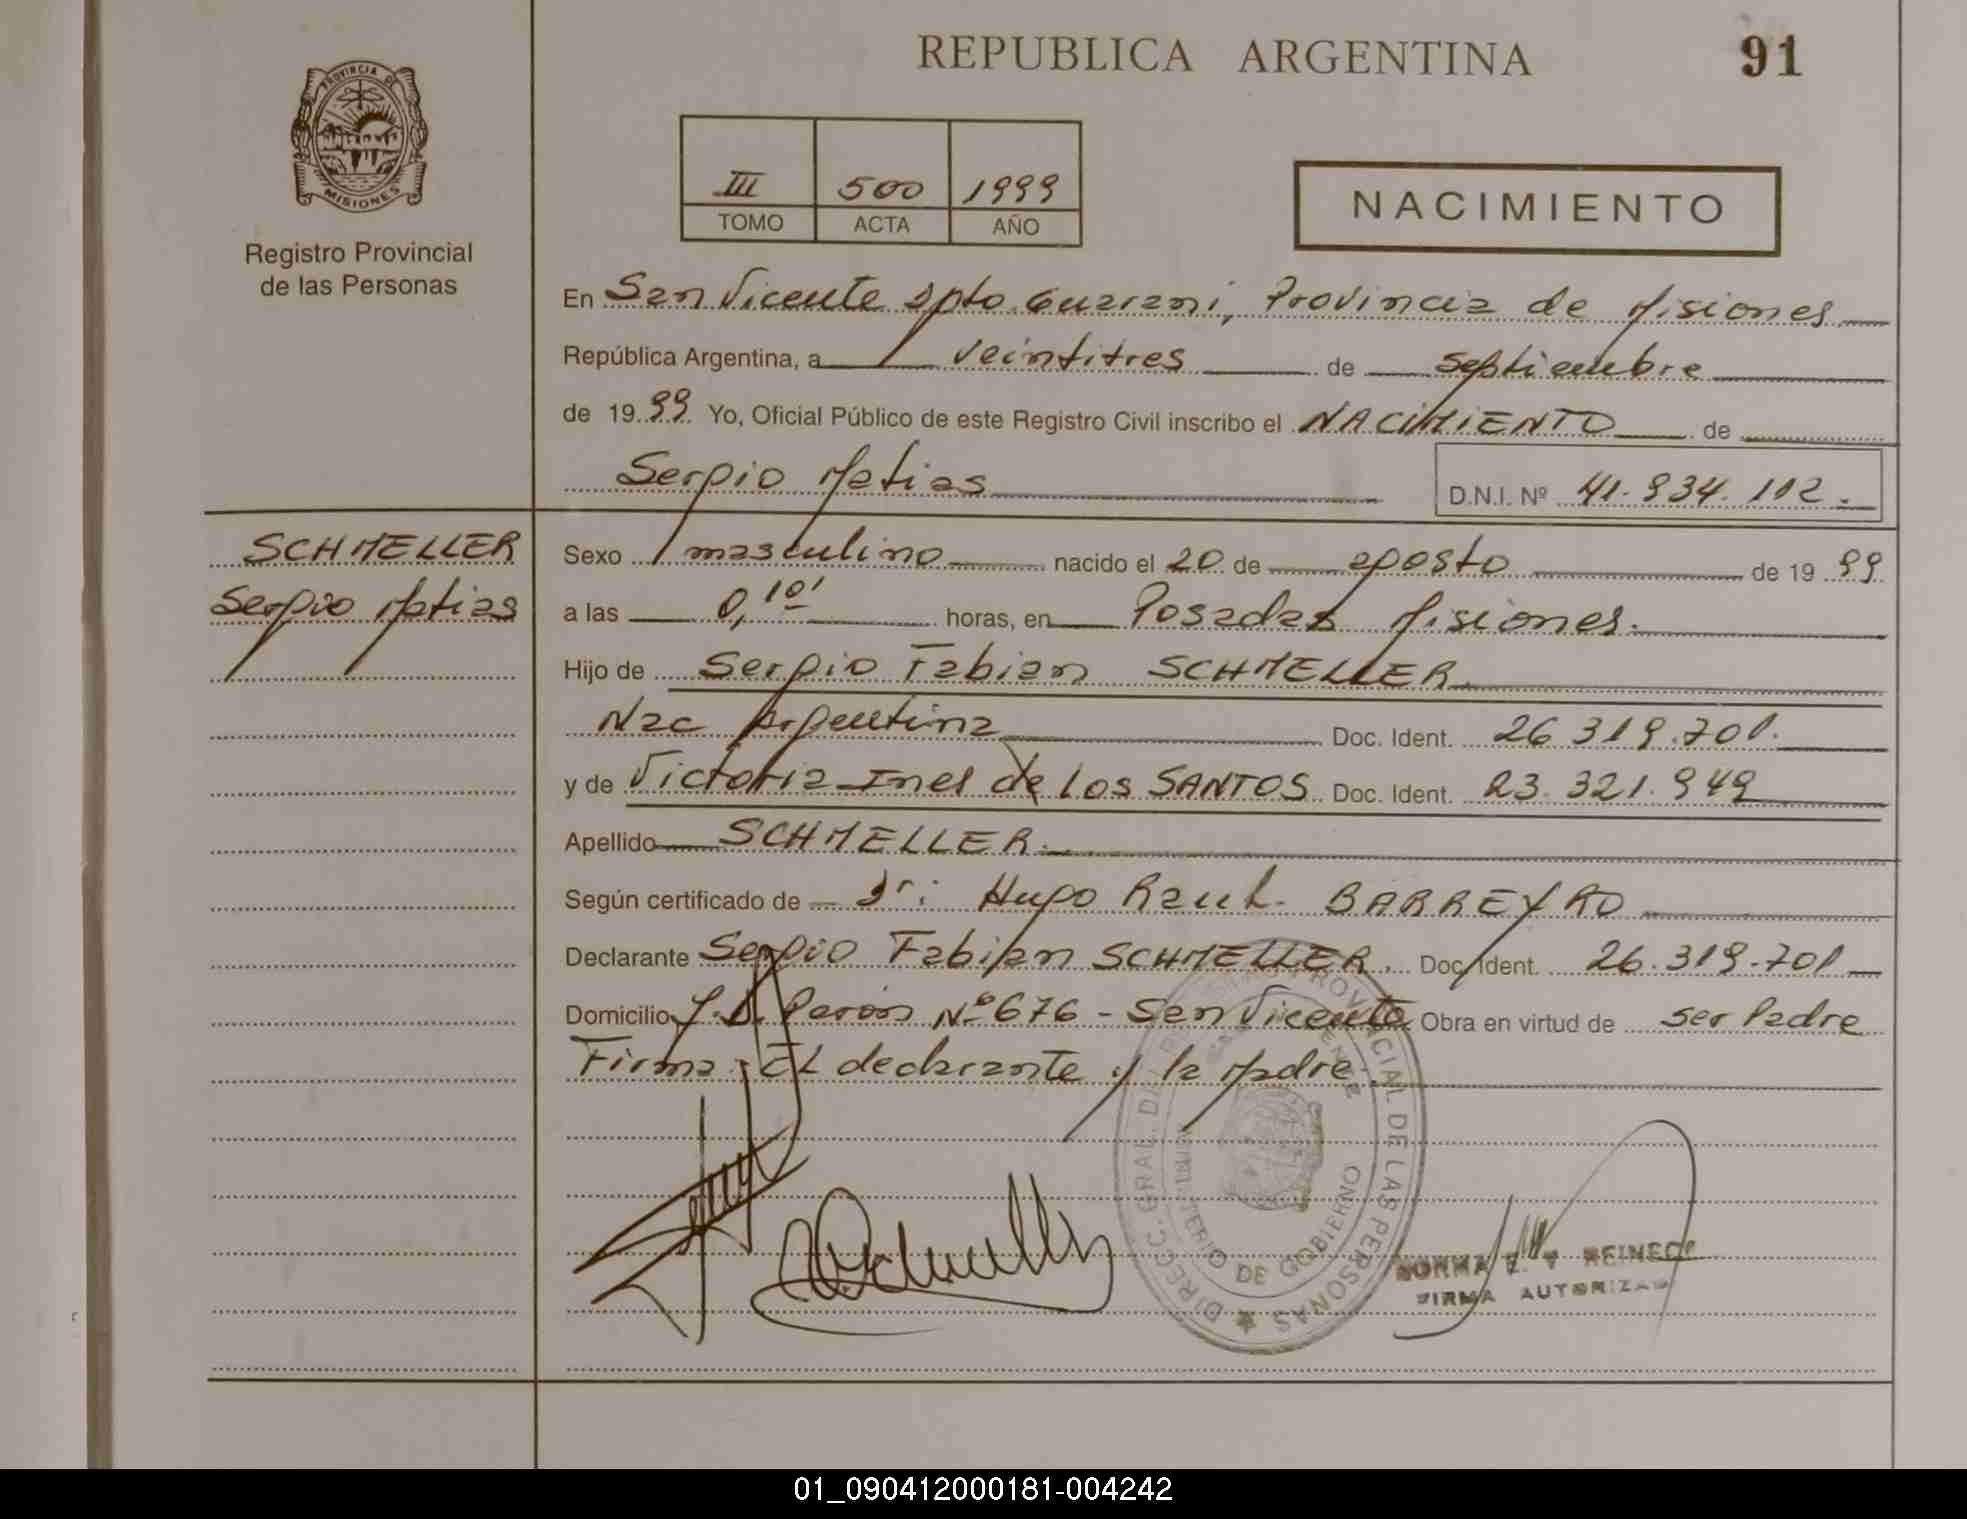 REPUBLICA ARGENTINA
91
PROVINCIA DE
MISIONES
Registro Provincial
de las Personas
III 500 1999
TOMO ACTA AÑO
NACIMIENTO
En San Vicente Dpto. Guarani, Provincia de Misiones
República Argentina, a veintitres de septiembre
de 1999 Yo, Oficial Público de este Registro Civil inscribo el NACIMIENTO de
Sergio Matias D.N.I. Nº 41.934.112.
SCHMELLER
Sergio Matias
Sexo masculino nacido el 20 de agosto de 1999
a las 0,10' horas, en Posadas Misiones.
Hijo de Sergio Fabian SCHMELLER
Nac Argentina Doc. Ident. 26.319.701.
y de Victoria Ines de los SANTOS Doc. Ident. 23.321.949
Apellido SCHMELLER.
Según certificado de Dr: Hugo Raul BARREYRO
Declarante Sergio Fabian SCHMELLER. Doc. Ident. 26.319.701
Domicilio J.D. Peron Nº 676 - San Vicente Obra en virtud de ser Padre
Firma: El declarante y la Madre.
DIRECC. GRAL. DEL PROVINCIAL DE LAS PERSONAS
DE GOBIERNO
NORMA
FIRMA AUTORIZADA
01_090412000181-004242